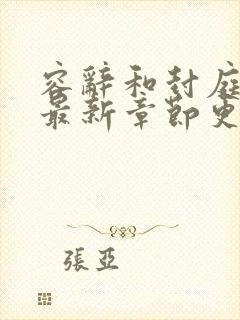 容辭和封庭
最新章節史
張亞